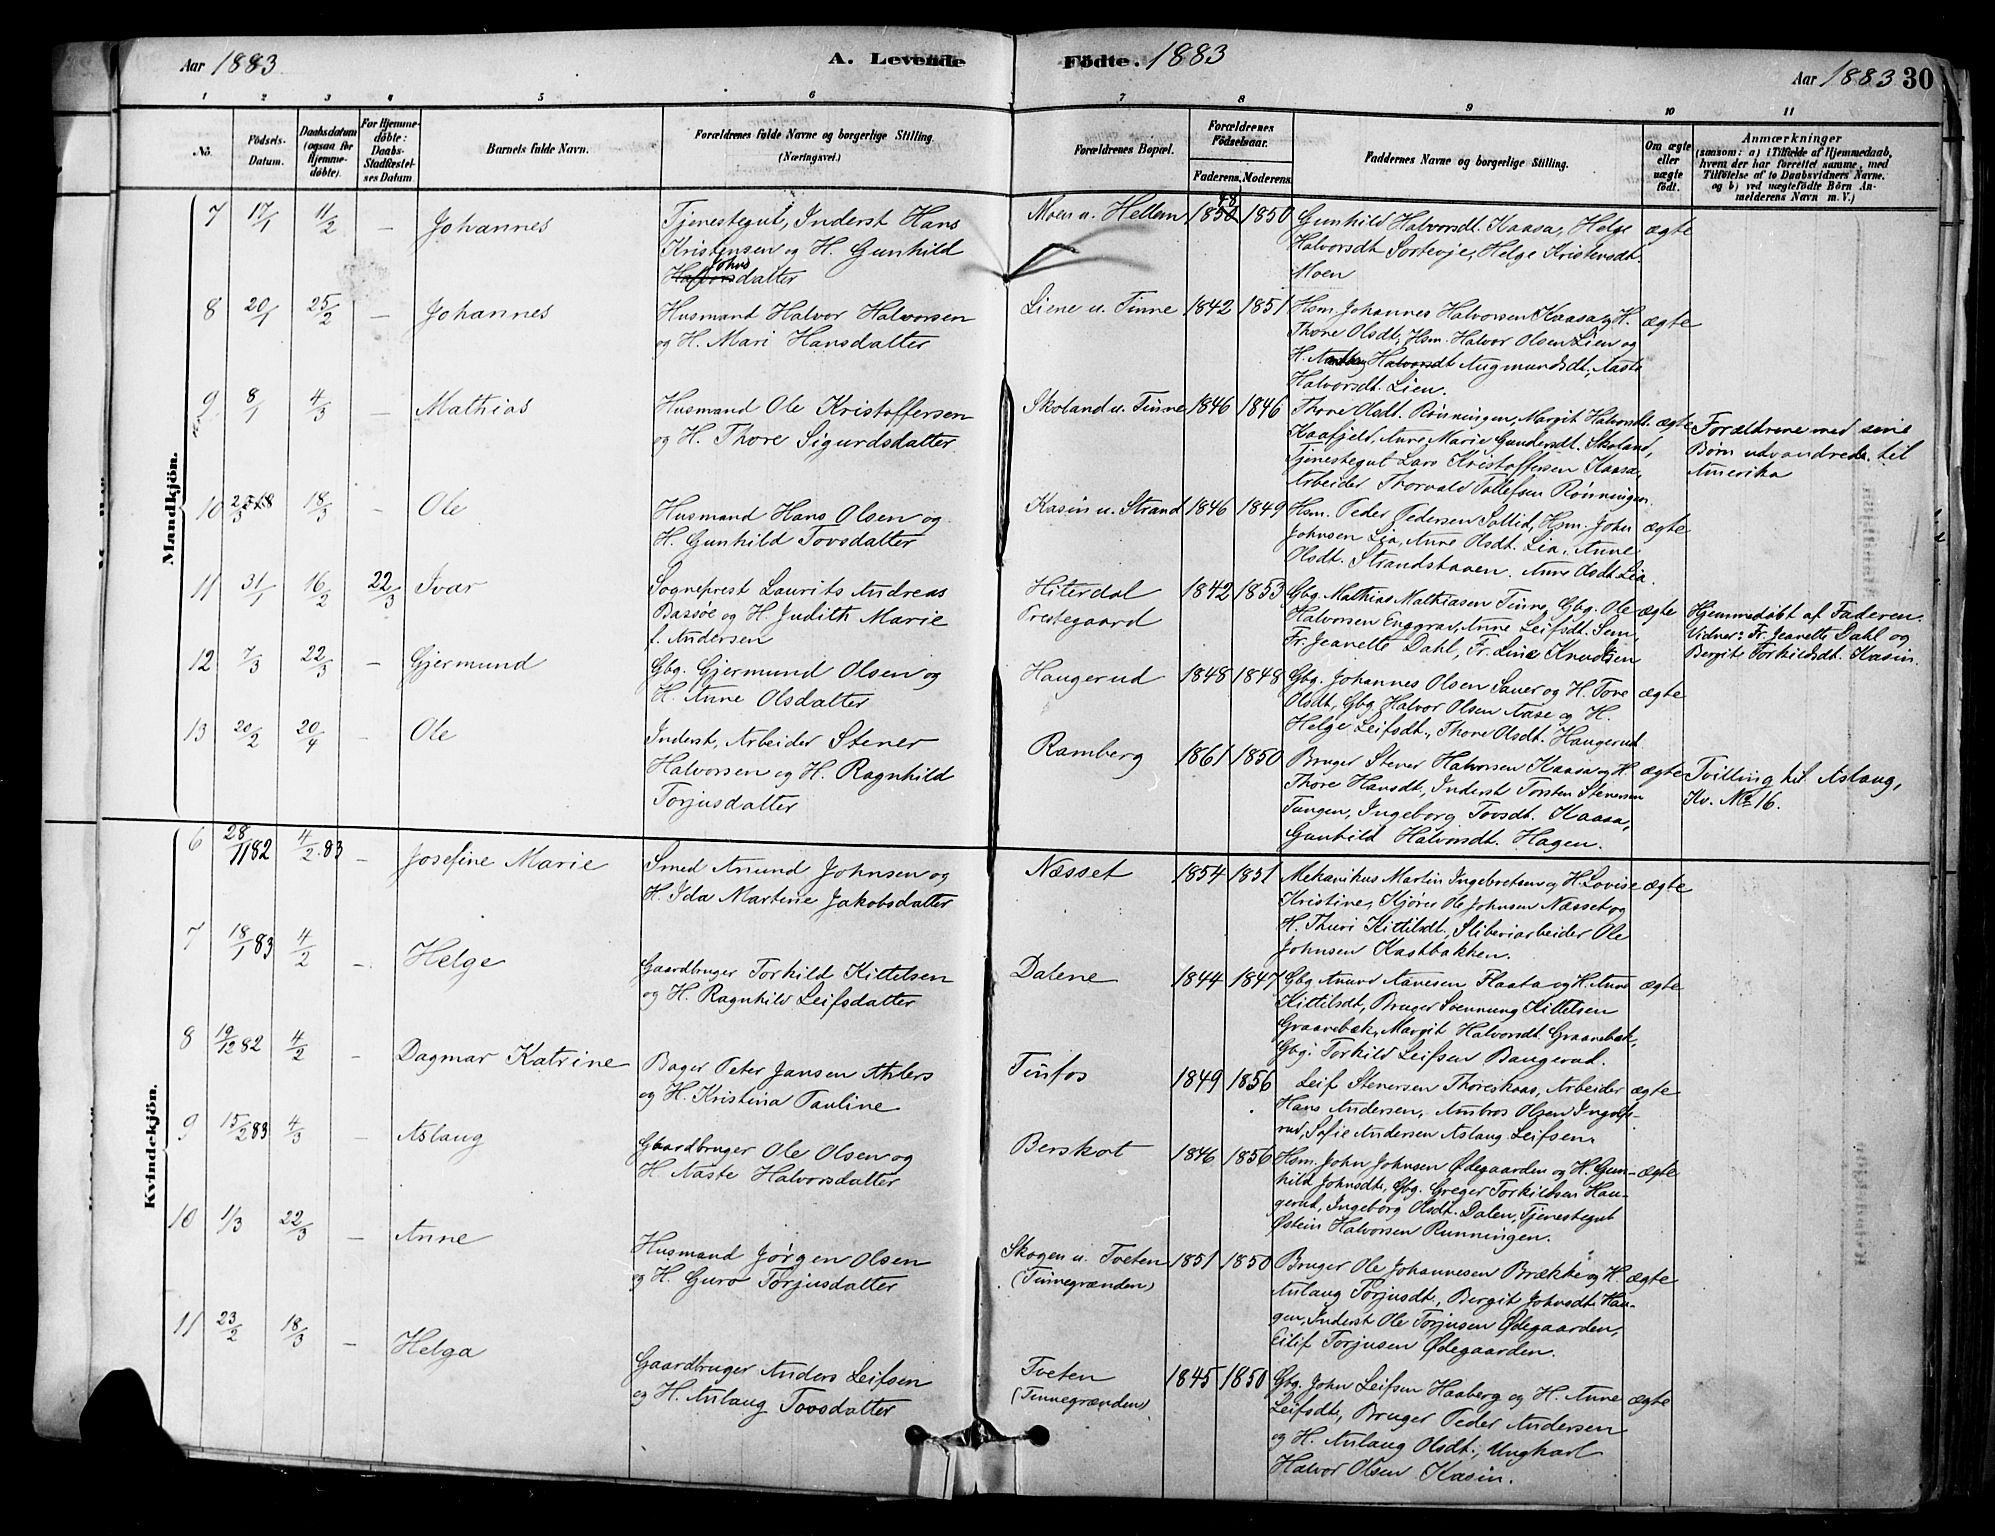 Aar 1883
A. Levende Födte. 1883
Aar 1883 30
1 2 3 4 5 6 7 8 9 10 11
No.
Födsels-
Datum.
Daabsdatum
(ogsaa for
Hjemme-
döbte).
For Hjemme-
döbte:
Daabs-
Stadfæstel-
ses Datum.
Barnets fulde Navn.
Forældrenes fulde Navne og borgerlige Stilling
(Næringsvei.)
Forældrenes Bopæl.
Forældrenes
Födselsaar.
Faderens. Moderens.
Faddernes Navne og borgerlige Stilling.
Om ægte
eller
uægte
födt.
Anmærkninger
(saasom: a) i Tilfælde af Hjemmedaab,
hvem der har forrettet samme, med
Tilföielse af to Daabsvidners Navne.
og b) ved uægtefödte Börn An-
melderens Navn m. V.)
Mandkjön.
7 17/1 11/2 - Johannes
Tjenestegut, Inderst Hans
Kristensen og H. Gunhild
Johns
Halvorsdatter
Moen u. Hellem
48
1850 1850
Gunhild Halvorsdt. Kaasa, Helge
Halvorsdt Sortevje, Helge Kristensdt.
Moen
ægte
8 20/1 25/2 - Johannes
Husmand Halvor Halvorsen
og H. Mari Hansdatter
Liene u. Tinne 1842 1851
Hsm. Johannes Halvorsen Kaasa og H.
Thore Olsdt, Hsm. Halvor Olsen Lien og
H. Halvorsdt Augmundsdt, Aaste
Halvorsdt. Lien.
ægte
9 8/1 4/3 - Mathias
Husmand Ole Kristoffersen
og H. Thore Sigurdsdatter
Skoland u. Tinne 1846 1846
Thore Olsdt. Rønningen, Margit Halvorsdt.
Kaafjeld, Anne Marie Gundersdt. Skoland,
Tjenestegut Lars Kristoffersen Kaasa,
Arbeider Thorvald Tollefsen Rønningen
ægte
Forældrene med sine
Børn udvandrede til
Amerika
10 18/3 - Ole
Husmand Hans Olsen og
H. Gunhild Tovsdatter
Kasin u. Strand 1846 1849
Hsm. Peder Pedersen Sollid, Hsm. John
Johnsen Lia, Anne Olsdt. Lia, Anne
Olsdt. Strandstaaen. Anne Olsdt Lia.
ægte
11 31/1 16/2 22/3 Ivar
Sogneprest Laurits Andreas
Bassøe og H. Judith Marie
f. Andersen
Hiterdal
Prestegaard
1842 1853
Gbg. Mathias Mathiasen Tinne, Gbg. Ole
Halvorsen Enggrav, Anne Leifsdt. Sem,
Fr. Jeanette Dahl, Fr. Line Knudsen
ægte
Hjemmedøbt af Faderen.
Vidner: Fr. Jeanette Dahl og
Bergit Torkildsdt. Kasin.
12 7/3 22/3 - Gjermund
Gbg. Gjermund Olsen og
H. Anne Olsdatter
Haugerud 1848 1848
Gbg. Johannes Olsen Sauer og H. Tone
Olsdt, Gbg Halvor Olsen Aase og H.
Helge Leifsdt., Thore Olsdt. Haugerud
ægte
13 20/2 20/4 - Ole
Inderst, Arbeider Stener
Halvorsen og H. Ragnhild
Torjusdatter
Ramberg 1861 1850
Bruger Stener Halvorsen Kaasa og H.
Thore Hansdt, Inderst Torsten Stenersen
Tangen, Ingeborg Tovsdt. Kaasa,
Gunhild Halvorsdt. Hagen.
ægte
Tvilling til Aslaug,
Kv. No 16.
Kvindekjön.
6 28/11 82 4/2. 83 - Josefine Marie
Smed Anund Johnsen og
H. Ida Martine Jakobsdatter
Næsset 1854 1851
Mekanikus Martin Ingebretsen og H. Lovise
Kristine, Kjører Ole Johnsen Næsset og
H. Thuri Kittilsdt., Sliberiarbeider Ole
Johnsen Kastbakken.
ægte
7 18/1 83 4/2 - Helge
Gaardbruger Torkild Kittelsen
og H. Ragnhild Leifsdatter
Dalene 1844 1847
Gbg. Anund Aanesen Flaata og H. Anne
Kittilsdt, Bruger Svennung Kittelsen
Graanebæk, Margit Halvorsdt. Graanebæk,
Gbg. Torkild Leifsen Baugerud.
ægte
8 19/12 82 4/2 - Dagmar Katrine
Bager Peter Jansen Ahlers
og H. Kristina Pauline
Tinfos 1849 1856
Leif Stenersen Thoreskaas, Arbeider
Hans Andersen, Ambros Olsen Ingolfs-
rud, Sofie Andersen Aslaug Leifsen.
ægte
9 15/2 83 4/3 - Aslaug
Gaardbruger Ole Olsen og
H. Aaste Halvorsdatter
Berskot 1846 1856
Hsm. John Johnsen Ødegaarden og H. Gun-
hild Johnsdt., Gbg. Greger Torkildsen Hau-
gerud, Ingeborg Olsdt. Dalen, Tjenestegut
Østein Halvorsen Runningen.
ægte
10 1/3 22/3 - Anne
Husmand Jørgen Olsen
og H. Guro Torjusdatter
Skogen u. Tveten
(Tinnegrænden)
1851 1850
Bruger Ole Johannesen Brække og H.
Aslaug Torjusdt., Bergit Johnsdt. Hau-
gen, Inderst Ole Torjusen Ødegaarden,
Eilif Torjusen Ødegaarden.
ægte
11 23/2 18/3 - Helga
Gaardbruger Anders Leifsen
og H. Aslaug Tovsdatter
Tveten
(Tinnegrænden)
1845 1850
Gbg. John Leifsen Haaberg og H. Anne
Leifsdt, Bruger Peder Andersen
og H. Aslaug Olsdt., Ungkarl
Halvor Olsen Kasin.
ægte